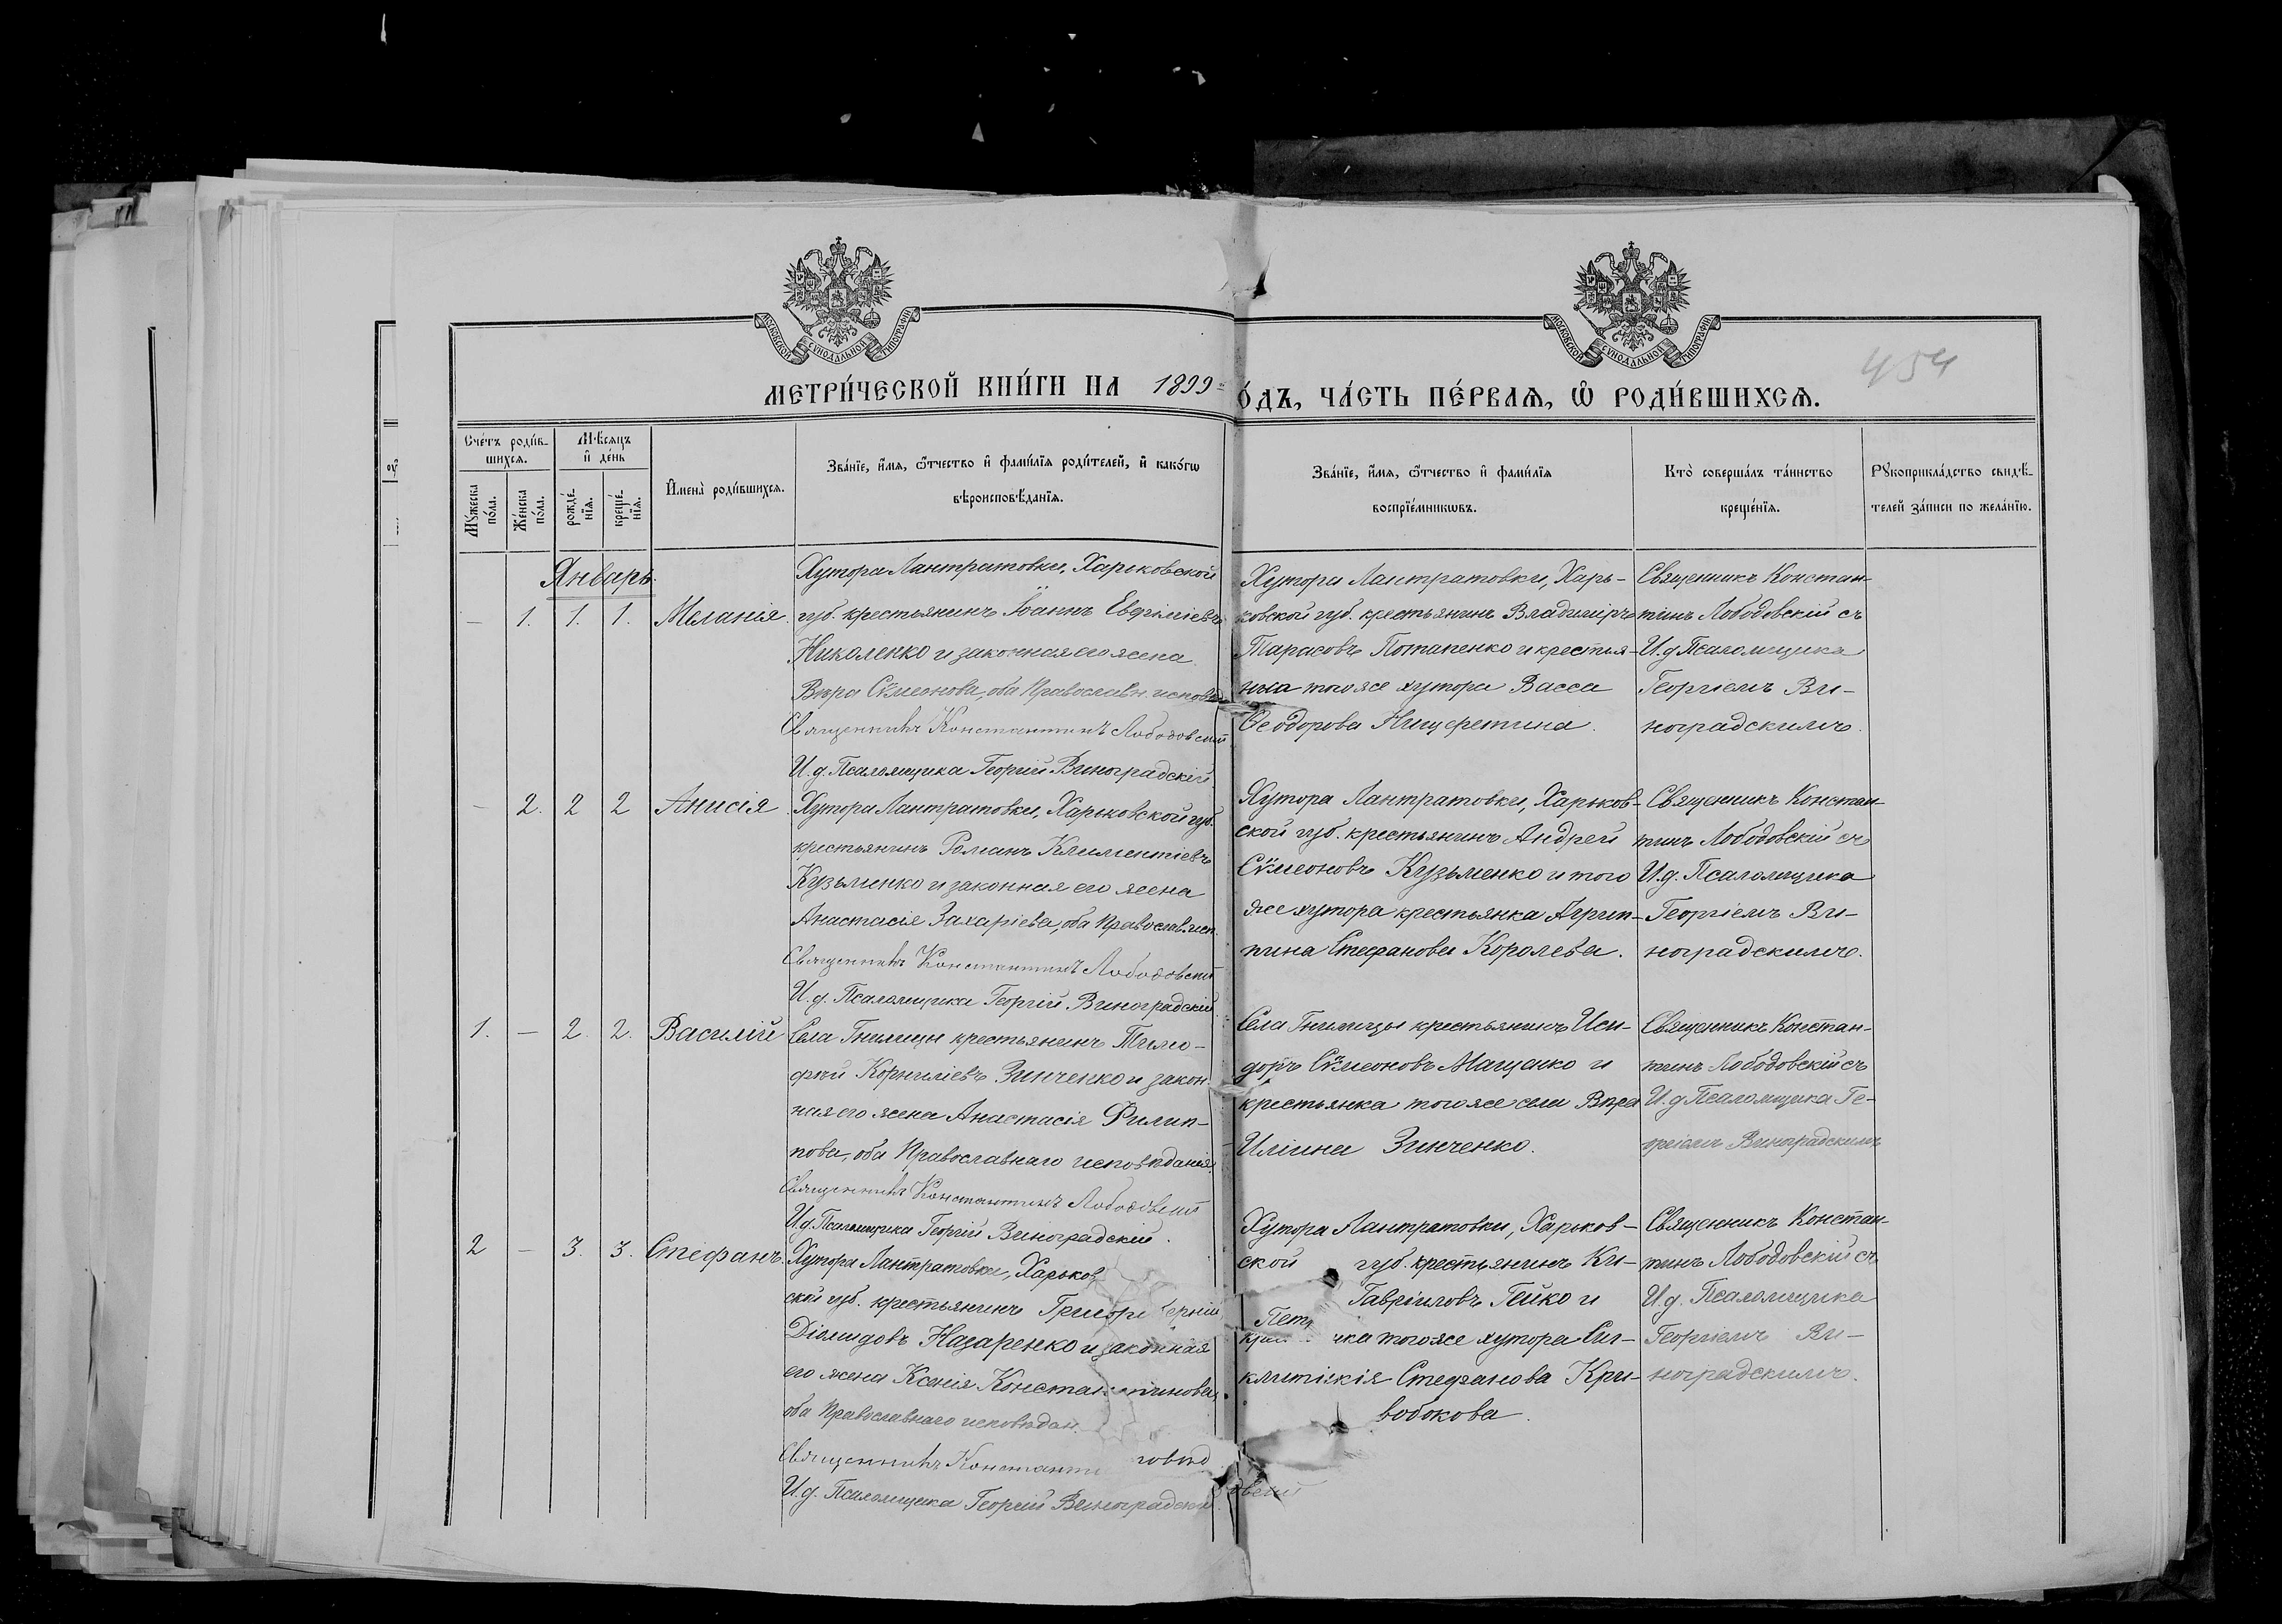 МОСКОВСКОЙ СѴНОДАЛЬНОЙ ТИПОГРАФІИ
МОСКОВСКОЙ СѴНОДАЛЬНОЙ ТИПОГРАФІИ
454
МЕТРИ́ЧЕСКОЙ КНИ́ГИ НА 1899
О́ДЪ, ЧА́СТЬ ПЕ́РВАѦ, Ѡ҆ РОДИ́ВШИХСѦ.
Сче́тъ роди́в-
шихсѧ.
Мѣ́сѧцъ
и҆ де́нь
Мꙋ́жеска
по́ла.
Же́нска
по́ла.
рожде́-
нїѧ.
креще́-
нїѧ.
И҆мена̀ роди́вшихсѧ.
Зва́нїе, и҆́мѧ, ѻ҆́тчество и҆ фами́лїѧ роди́телей, и҆ како́гѡ
вѣроисповѣ́данїѧ.
Зва́нїе, и҆́мѧ, ѻ҆́тчество и҆ фами́лїѧ
воспрїе́мникѡвъ.
Кто̀ соверша́лъ та́инство
креще́нїѧ.
Рꙋкоприкла́дство свидѣ́-
телей за́писи по жела́нїю.
Январь.
— 1. 1. 1. Меланія.
Хутора Лантратовки, Харьковской
губ. крестьянинъ Іоаннъ Евфиміевъ
Николенко и законная его жена
Вѣра Сѵмеонова, оба Православн. исповѣд
Священникъ Константинъ Лободовскій
И. д. Псаломщика Георгій Виноградскій.
Хутора Лантратовки, Харь-
ковской губ. крестьянинъ Владиміръ
Тарасовъ Потапенко и крестья-
нка того же хутора Васса
Ѳеодорова Нищеретина.
Священникъ Констан-
тинъ Лободовскій съ
И. д. Псаломщика
Георгіемъ Ви-
ноградскимъ.
— 2. 2 2 Анисія.
Хутора Лантратовки, Харьковской губ.
крестьянинъ Романъ Климентіевъ
Кузьменко и законная его жена
Анастасія Захаріева, оба Православ. исп.
Священникъ Константинъ Лободовскій
И. д. Псаломщика Георгій Виноградскій.
Хутора Лантратовки, Харьков-
ской губ. крестьянинъ Андрей
Сѵмеоновъ Кузьменко и того
же хутора крестьянка Агрип-
пина Стефанова Королева.
Священникъ Констан-
тинъ Лободовскій съ
И. д. Псаломщика
Георгіемъ Ви-
ноградскимъ.
1. — 2. 2. Василій
Села Гнилицы крестьянинъ Тимо-
фей Корниліевъ Зинченко и закон-
ная его жена Анастасія Филип-
пова, оба Православнаго исповѣданія.
Священникъ Константинъ Лободовскій
И. д. Псаломщика Георгій Виноградскій.
Села Гнилицы крестьянинъ Иси-
доръ Сѵмеоновъ Мащенко и
крестьянка того же села Вѣра
Иліина Зинченко.
Священникъ Констан-
тинъ Лободовскій съ
И. д. Псаломщика Ге-
оргіемъ Виноградскимъ
2 — 3. 3. Стефанъ.
Хутора Лантратовки, Харьков
ской губ. крестьянинъ Григорі
Діомидовъ Назаренко и законная
его жена Ксенія Константинова,
оба Православнаго исповѣдан.
Священникъ Константи
И. д. Псаломщика Георгій Виноградскі
Хутора Лантратовки, Харьков-
ской губ. крестьянинъ Ки-
Гавріиловъ Гейко и
нка того же хутора Син-
клитикія Стефанова Кри-
вобокова.
Священникъ Констан-
тинъ Лободовскій съ
И. д. Псаломщика
Георгіемъ Ви-
ноградскимъ.